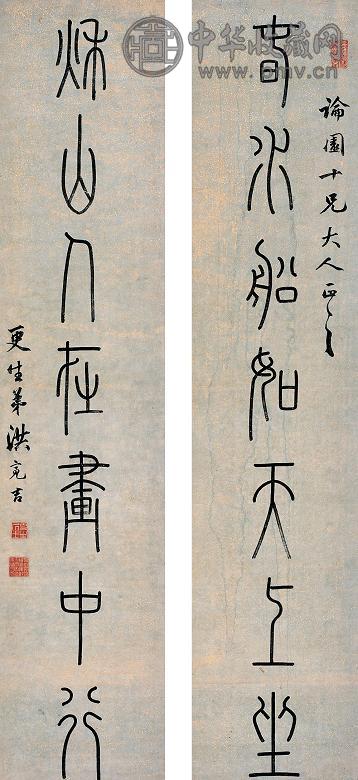 中华收藏网
論園十兄大人正之
春水船如天上坐
秋山人在畫中行
更生弟洪亮吉